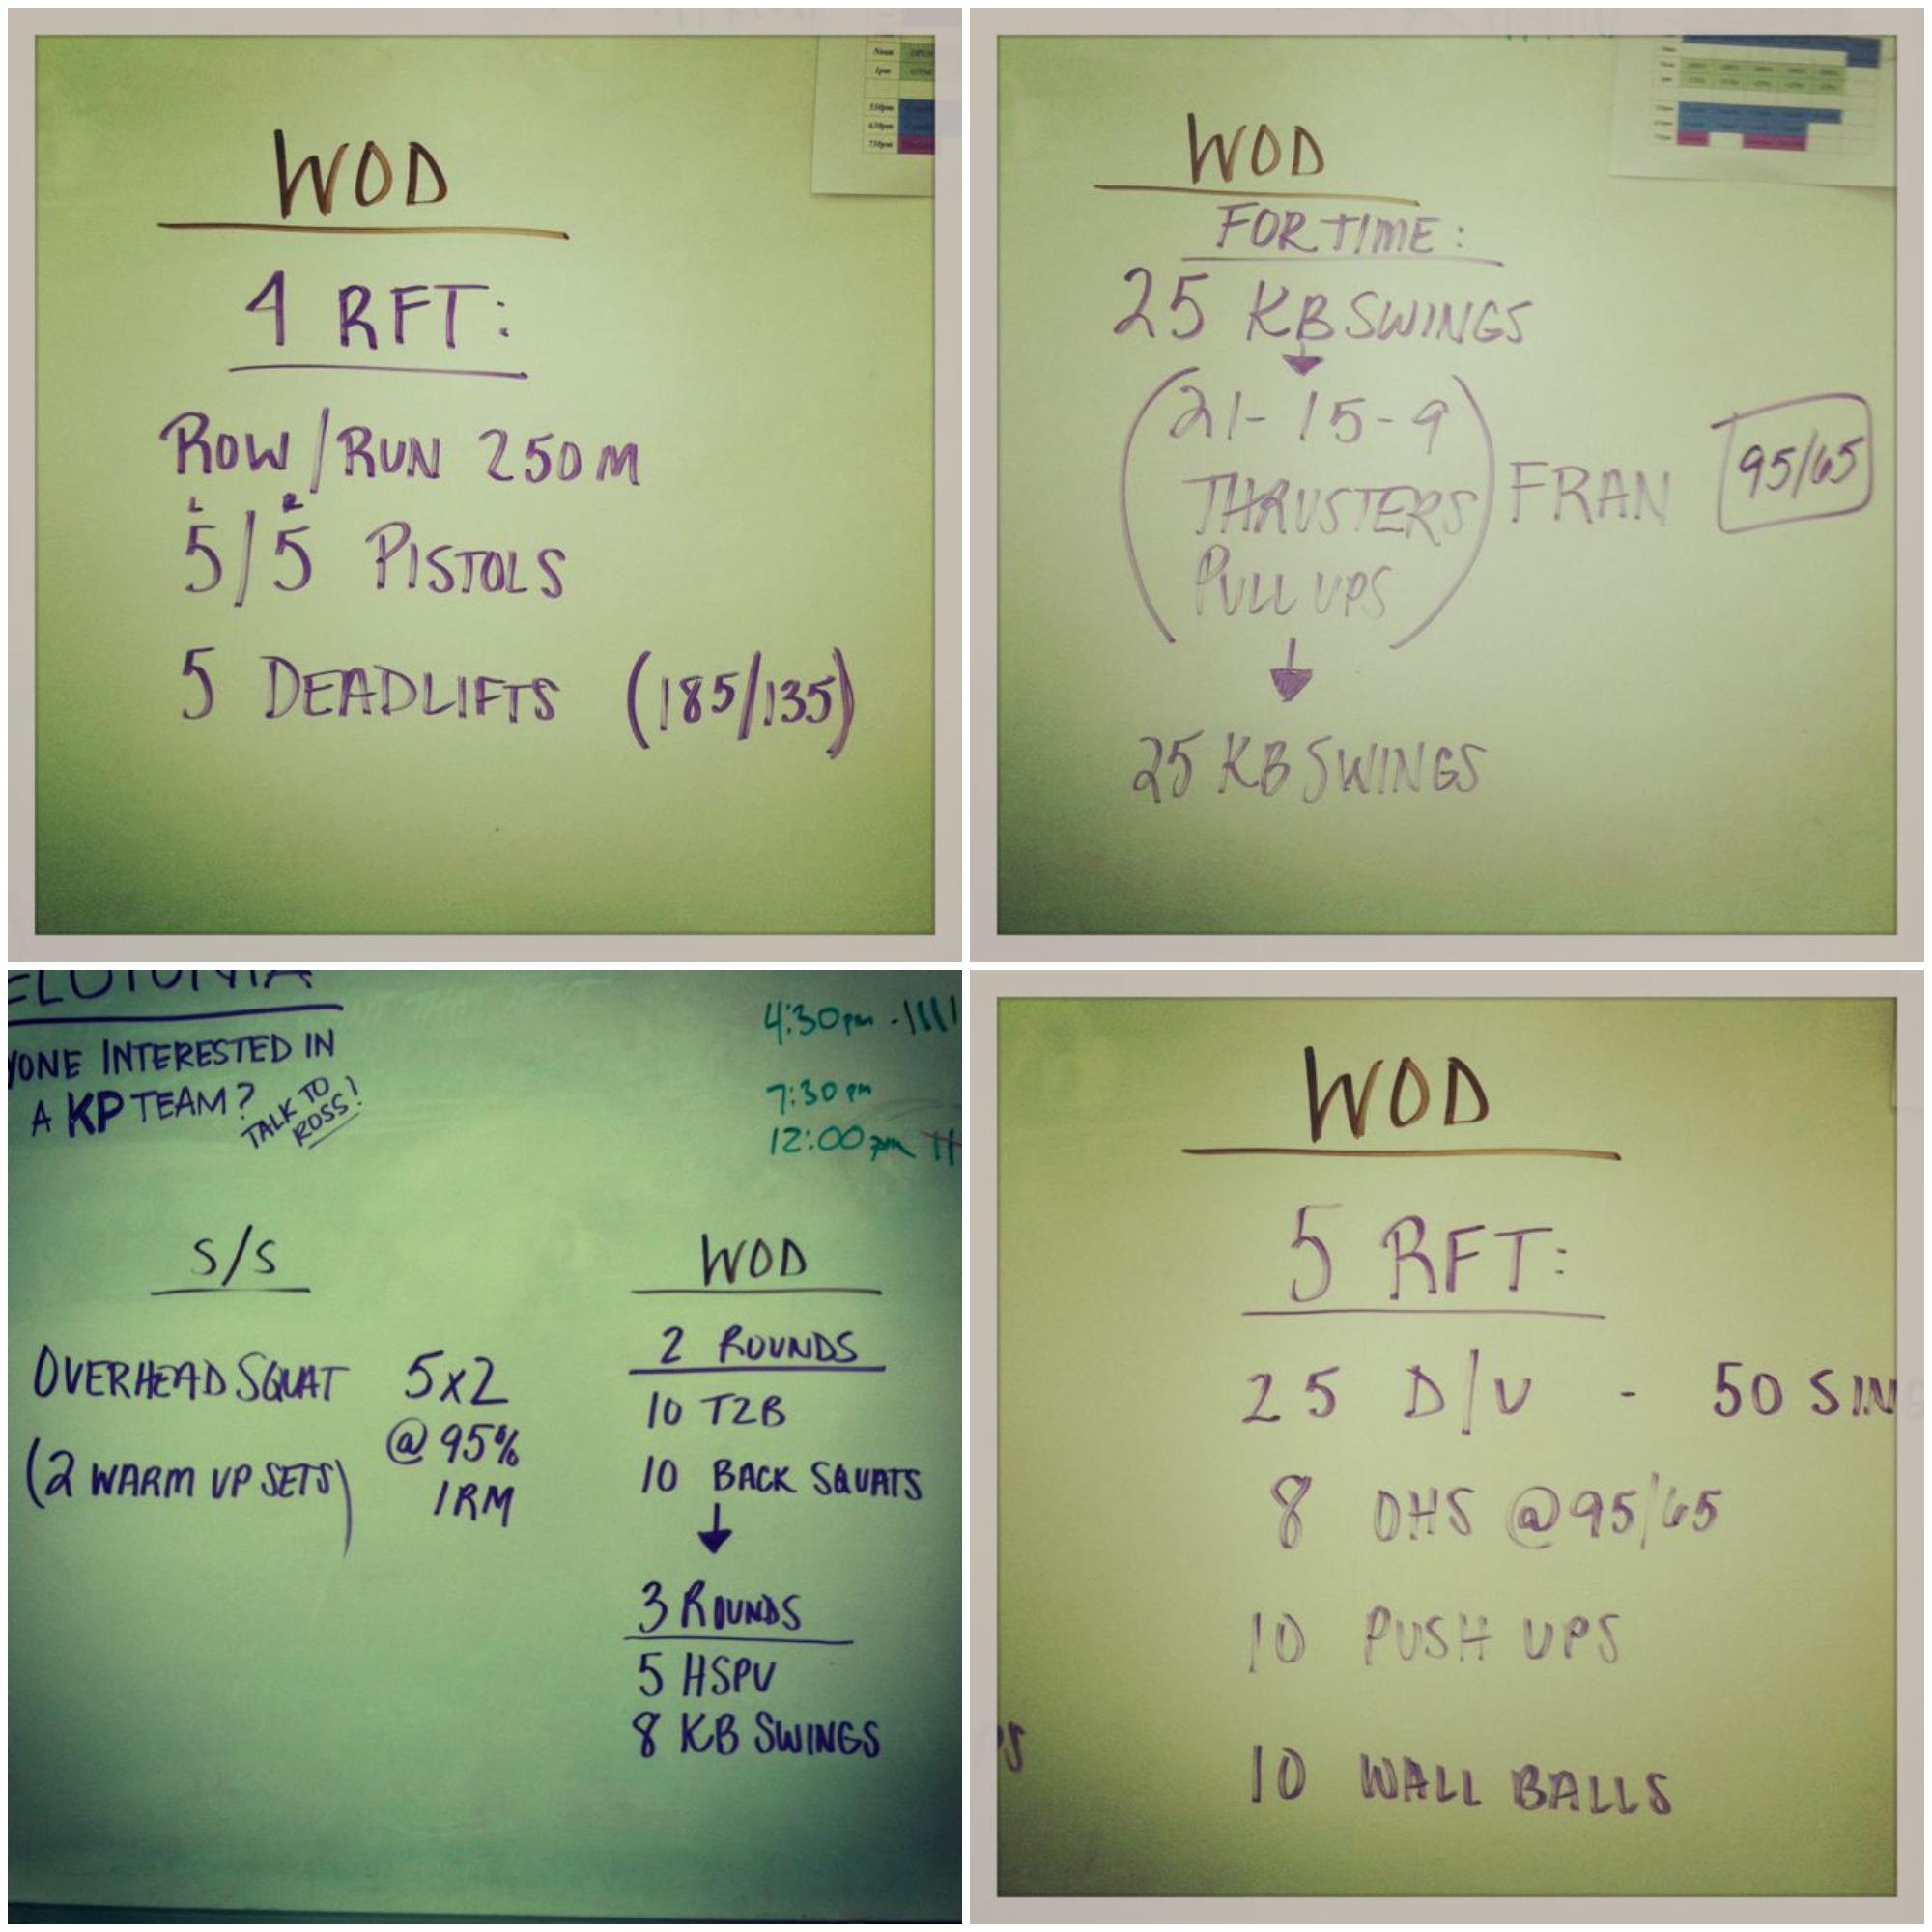 Noon OPEN
1pm GYM
5:30pm
6:30pm
7:30pm
WOD
4 RFT:
ROW/RUN 250 M
L R
5/5 PISTOLS
5 DEADLIFTS (185/135)
WOD
FOR TIME:
25 KB SWINGS
21-15-9
THRUSTERS
PULL UPS
FRAN 95/65
25 KB SWINGS
INTERESTED IN
A KP TEAM?
TALK TO
ROSS!
4:30pm - ||||
7:30pm
12:00pm
S/S
OVERHEAD SQUAT 5x2
@ 95%
(2 WARM UP SETS) 1RM
WOD
2 ROUNDS
10 T2B
10 BACK SQUATS
3 ROUNDS
5 HSPU
8 KB SWINGS
WOD
5 RFT:
25 D/U - 50 SIN
8 OHS @95/65
10 PUSH UPS
10 WALL BALLS